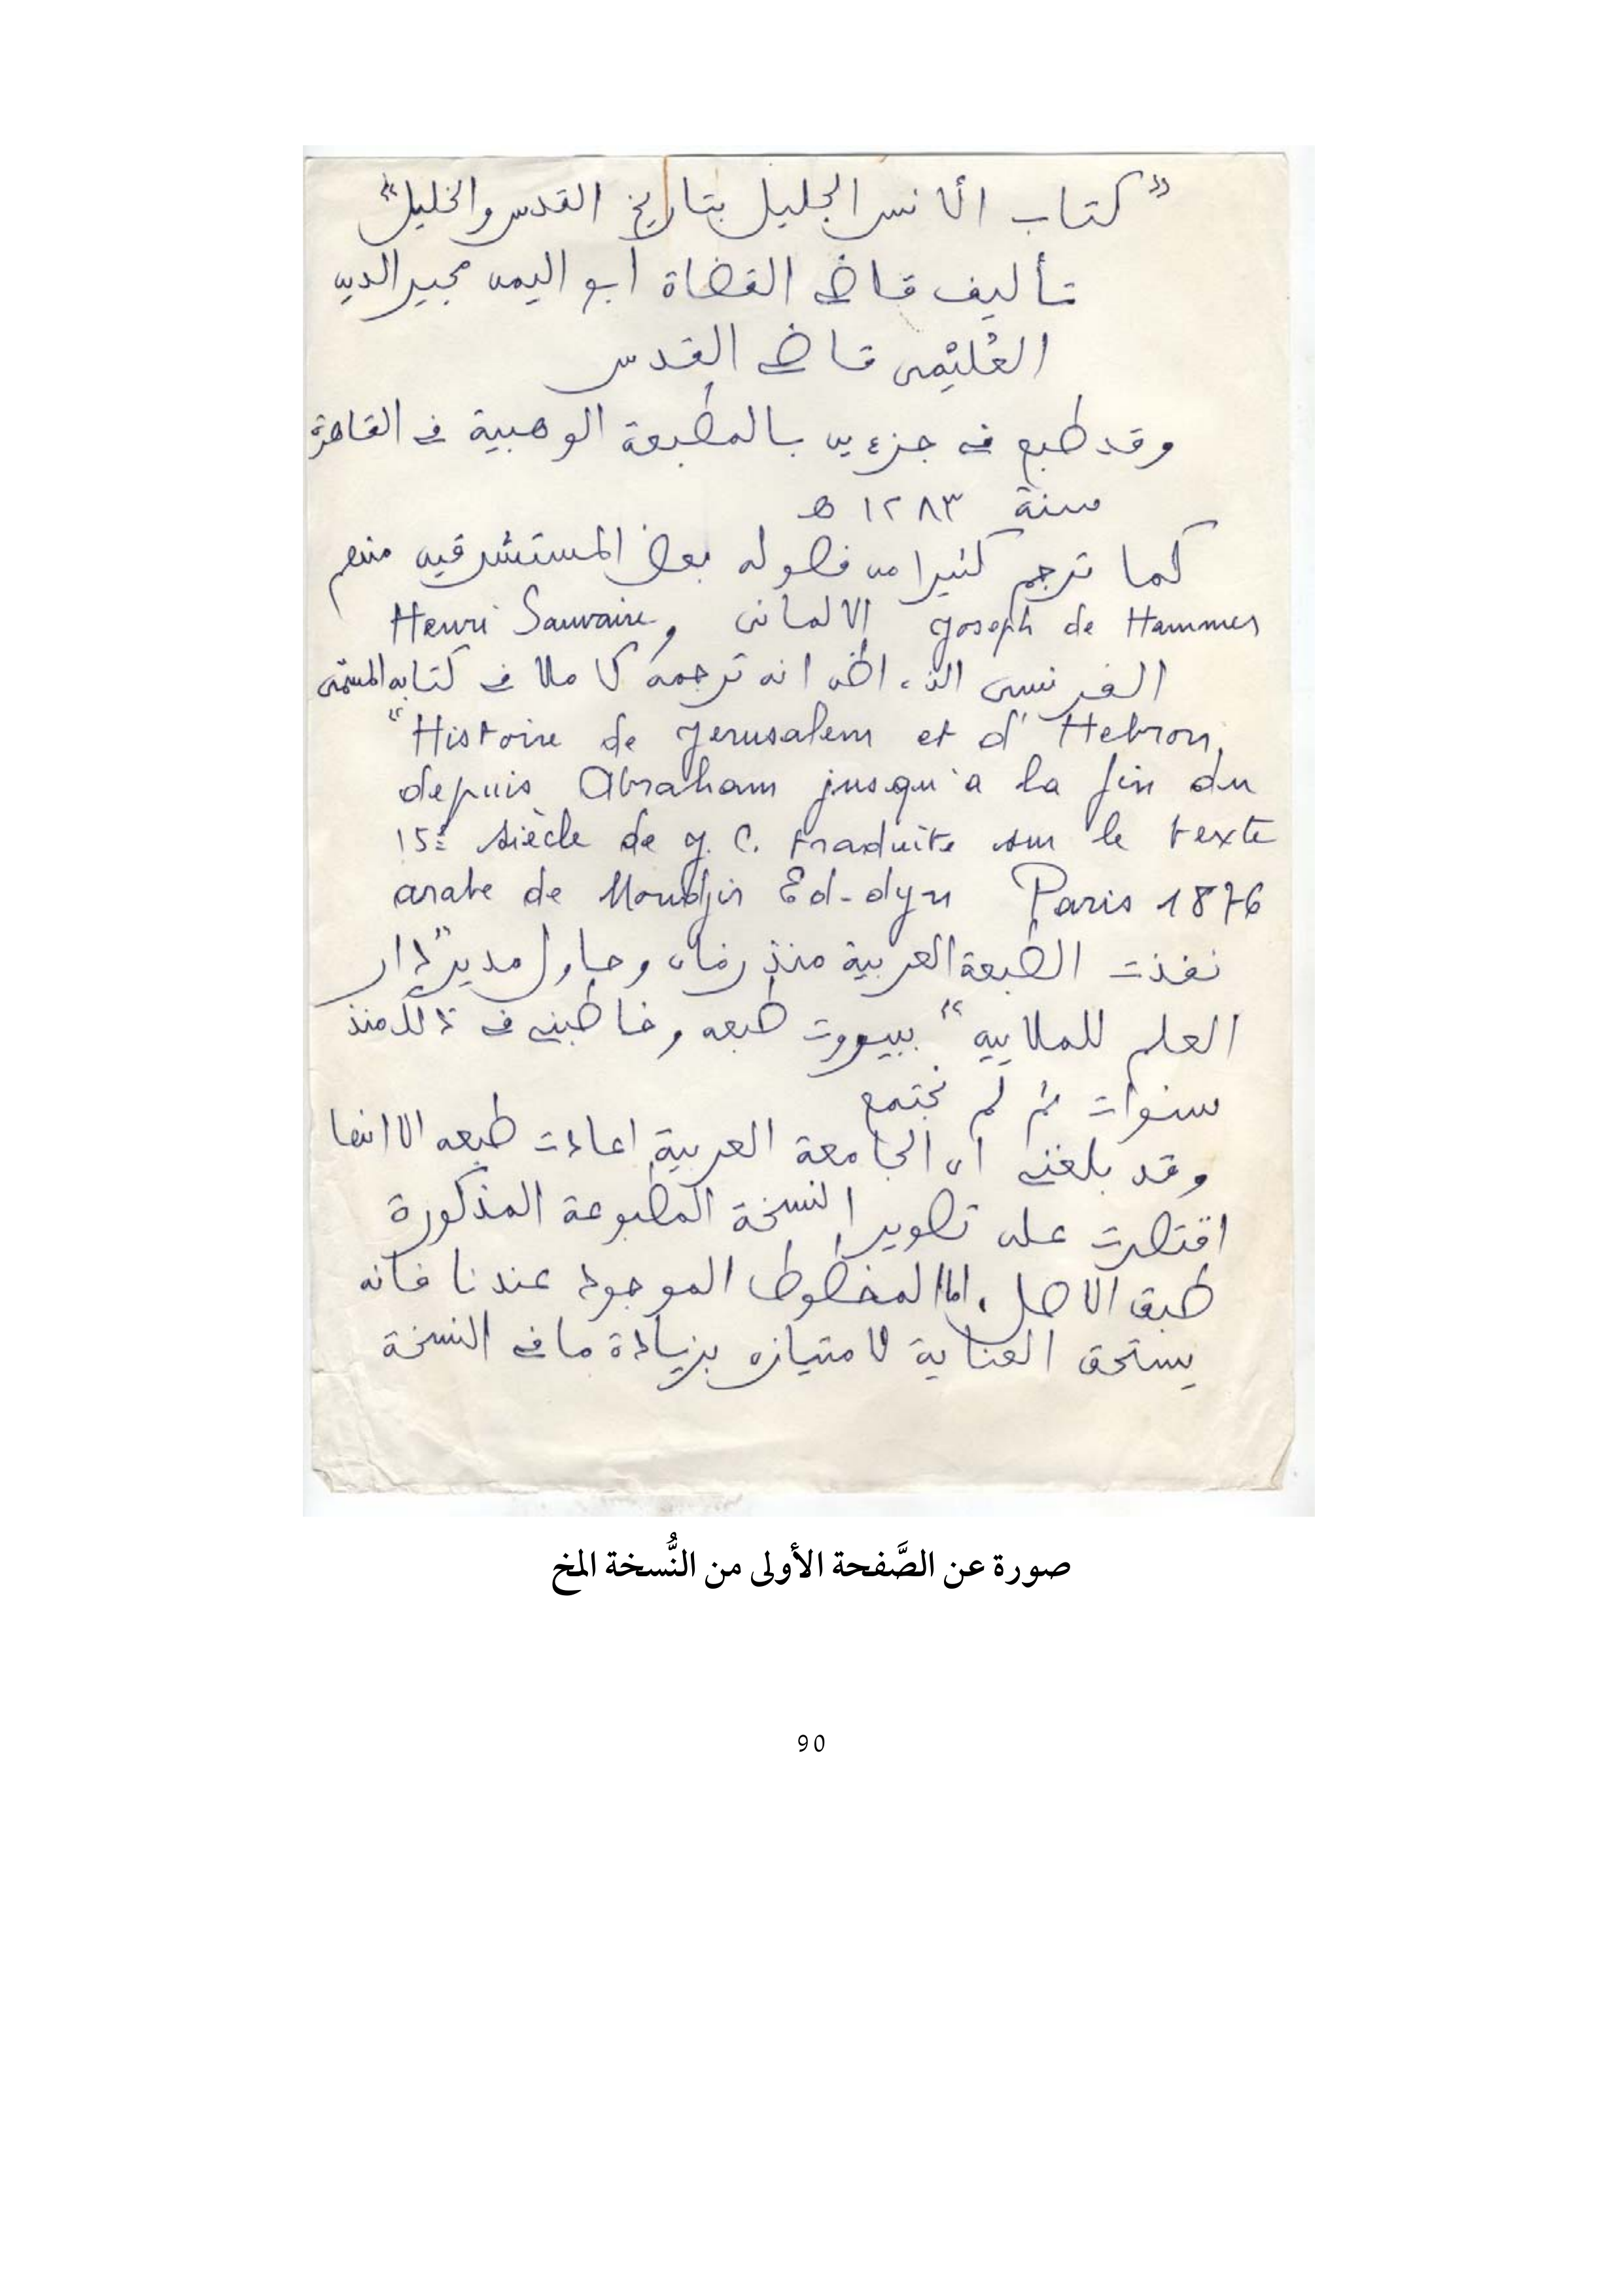 ”كتاب الأنس الجليل بتاريخ القدس والخليل“
تأليف قاضى القضاة أبو اليمن مجير الدين
العُلَيْمى قاضى القدس
وقد طبع فى جزءين بالمطبعة الوهبية فى القاهرة
سنة ١٢٨٣ ھ
كما ترجم كثيرا من فصوله بعض المستشرقين منهم
Joseph de Hammer الالمانى و Henri Sauvaire
الفرنسى الذى اظن انه ترجمه كاملا فى كتابه المسمّى
"Histoire de Jerusalem et d'Hebron,
depuis Abraham jusqu'a la fin du
15e siècle de J. C. traduite sur le texte
arabe de Moudjir Ed-dyn Paris 1876
نفذت الطبعة العربية منذ زمان وحاول مدير ”دار
العلم للملايين“ ببيروت طبعه وخاطبنى فى ذلك منذ
سنوات ثم لم نجتمع
وقد بلغنى ان الجامعة العربية اعادت طبعه الا انها
اقتصرت على تصوير النسخة المطبوعة المذكورة
طبق الاصل، اما المخطوط الموجود عندنا فانه
يستحق العناية لامتيازه بزيادة ما فى النسخة
صورة عن الصَّفحة الأولى من النُّسخة المخ
90